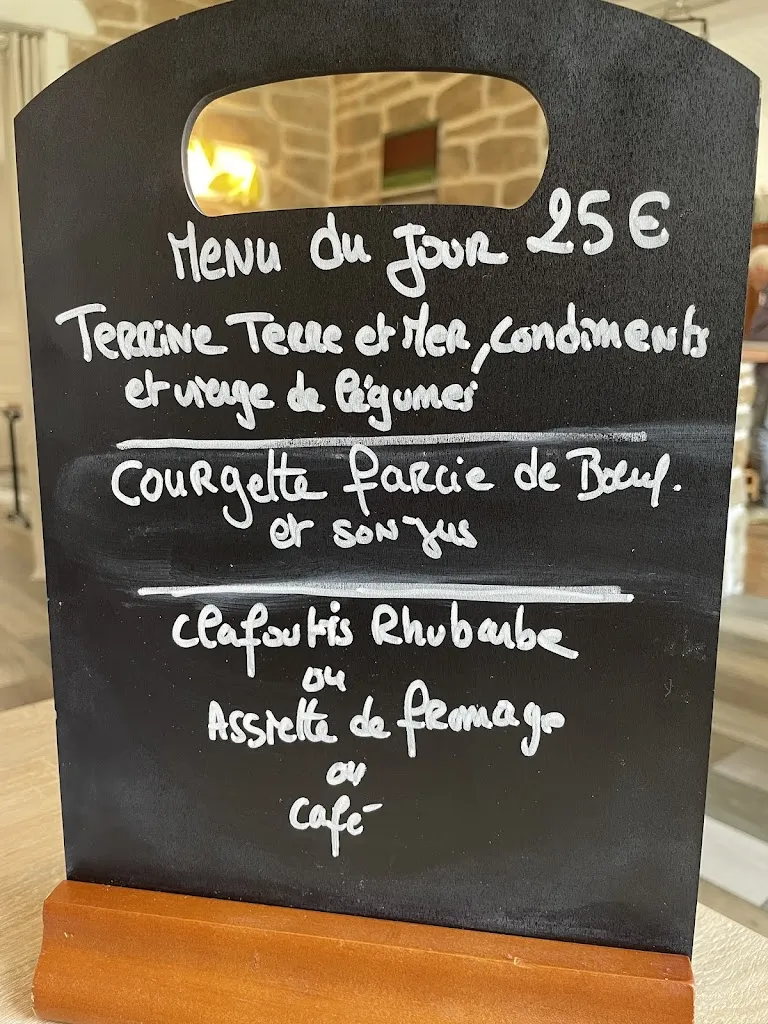 Menu du Jour 25€
Terrine Terre et Mer, condiments
et vierge de légumes
Courgette farcie de Bœuf.
et son jus
Clafoutis Rhubarbe
ou
Assiette de fromage
ou
Café